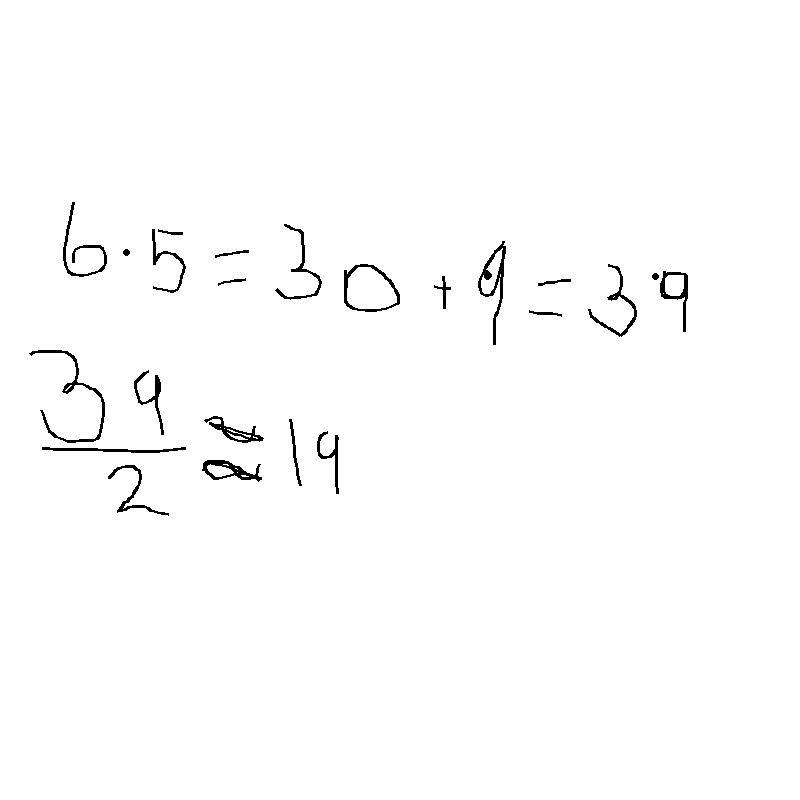 6·5=30+9=39
39/2≈19